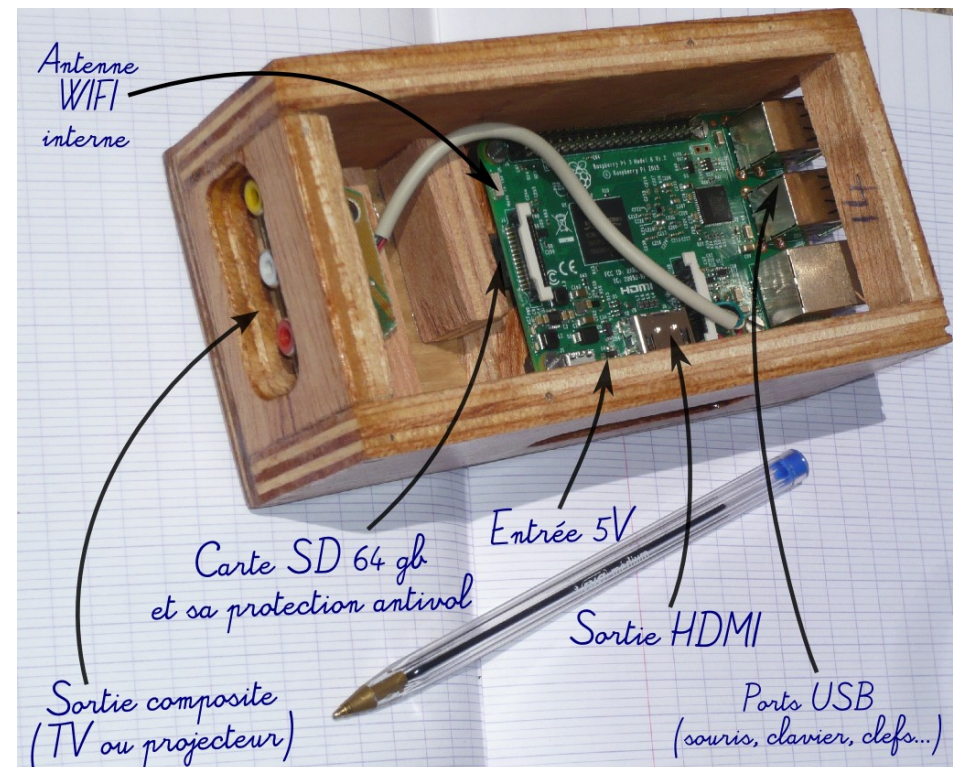 Antenne
WIFI
interne
Raspberry Pi 3 Model B V1.2
© Raspberry Pi 2015
CE
HDMI
14
Carte SD 64 gb
et sa protection antivol
Entrée 5V
Sortie HDMI
Sortie composite
(TV ou projecteur)
Ports USB
(souris, clavier, clefs...)